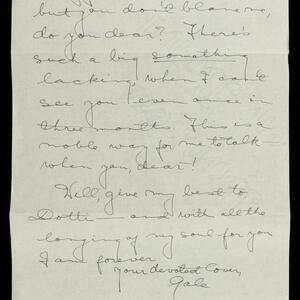 but you don't blame me,
do you dear? There's
such a big something
lacking, when I can't
see you even once in
three months. This is a
noble way for me to talk —
when you, dear!
Well, give my best to
Dotti — and with all the
longing of my soul for you
I am forever
your devoted lover,
Gale